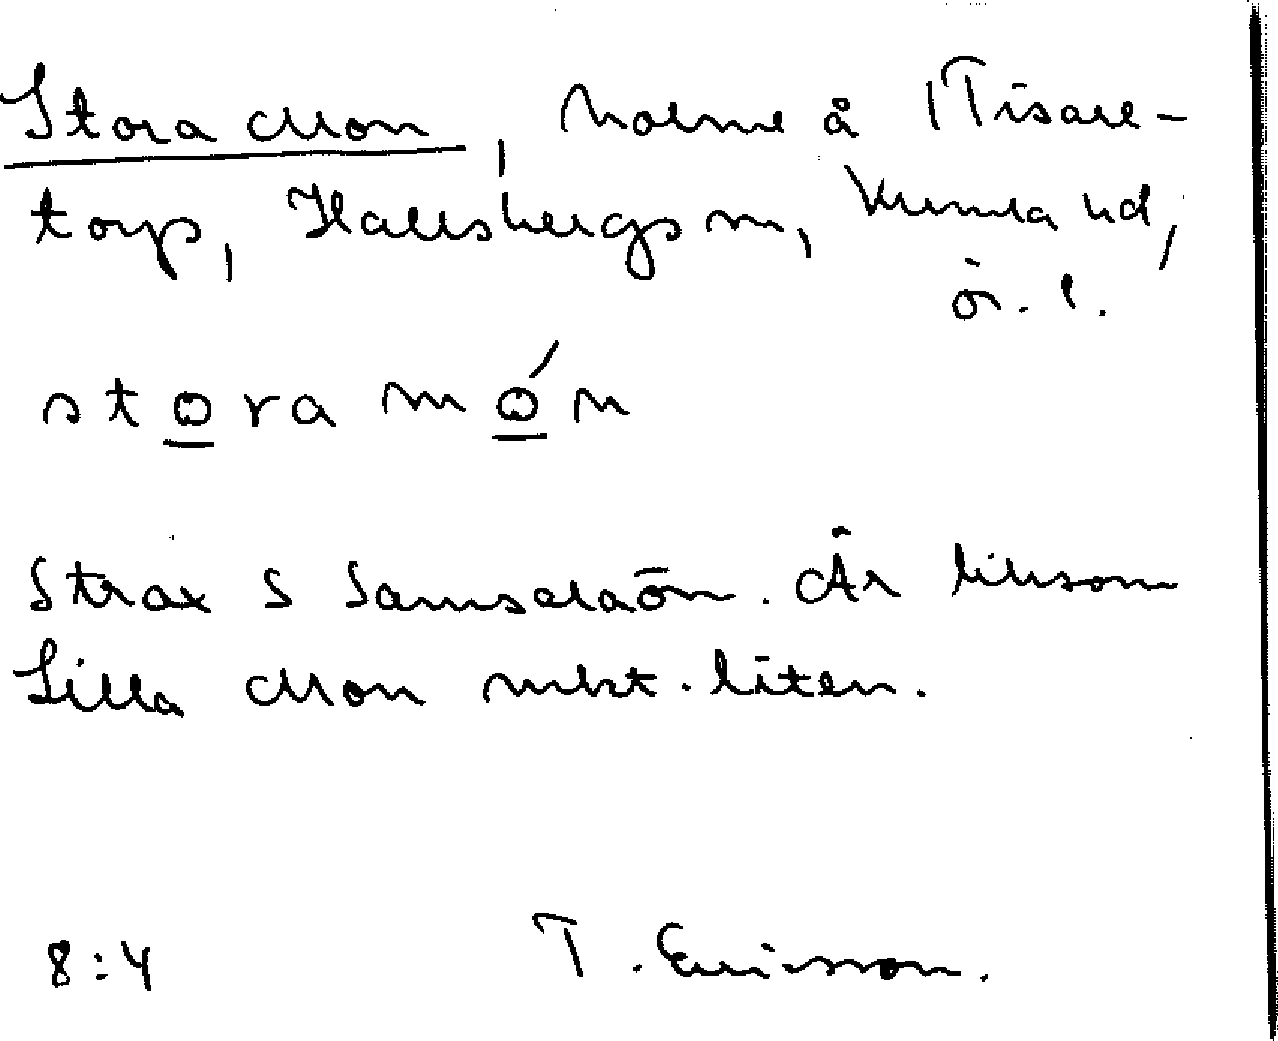 Stora Mon, holme å 1 Tisare-
torp, Hallsbergs sn, Kumla hd,
ör. l.
stora món
Strax S Samsalaön. Är liksom
Lilla Mon mkt. liten.
8:4 T. Ericsson.